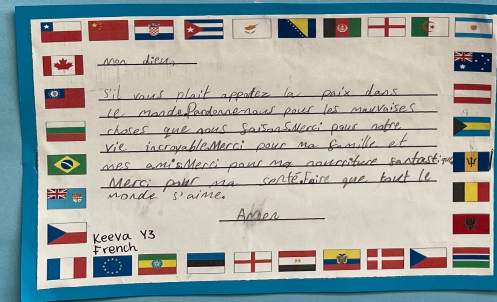 Mon dieu,
S'il vous plait apportez la paix dans
le monde. Pardonne-nous pour les mauvaises
choses que nous faisons. Merci pour notre
vie incroyable. Merci pour ma famille et
mes amis. Merci pour ma nourriture fantastique
Merci pour ma santé. Faire que tout le
monde s'aime.
Amen
Keeva Y3
French